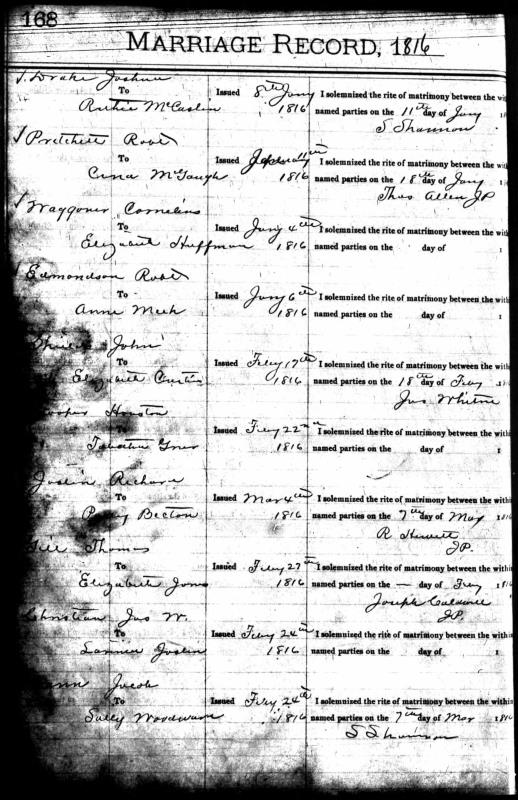 168
MARRIAGE RECORD, 1816
Drake Joshua
To
Ruthie McCaslin
Issued 8th Jany 1816
I solemnized the rite of matrimony between the
named parties on the 11th day of Jany
S Shannon
Pritchett Robt
To
McGaugh
Issued 1816
I solemnized the rite of matrimony between the
named parties on the 18th day of Jany
Thos Allen JP
Waggoner Cornelius
To
Elizabeth Huffman
Issued Jany 4th 1816
I solemnized the rite of matrimony between the
named parties on the day of
Edmondson Robt
To
Anne Meek
Issued Jany 6th 1816
I solemnized the rite of matrimony between the
named parties on the day of
John
To
Elizabeth Curtis
Issued Feby 17th 1816
I solemnized the rite of matrimony between the
named parties on the 18th day of Feby
Jas
Cooper Houston
To
Issued Feby 22nd 1816
I solemnized the rite of matrimony between the
named parties on the day of
Joslin Richard
To
Becton
Issued Mar 4th 1816
I solemnized the rite of matrimony between the
named parties on the 7th day of Mar
R Hewitt
JP.
Thomas
To
Elizabeth Jones
Issued Feby 27th 1816
I solemnized the rite of matrimony between the
named parties on the — day of Feby
Joseph Caldwell
JP.
Jas W.
To
Joslin
Issued Feby 24th 1816
I solemnized the rite of matrimony between the
named parties on the day of
Jacob
To
Sally Woodward
Issued Feby 24th 1816
I solemnized the rite of matrimony between the
named parties on the 7th day of Mar
S Shannon